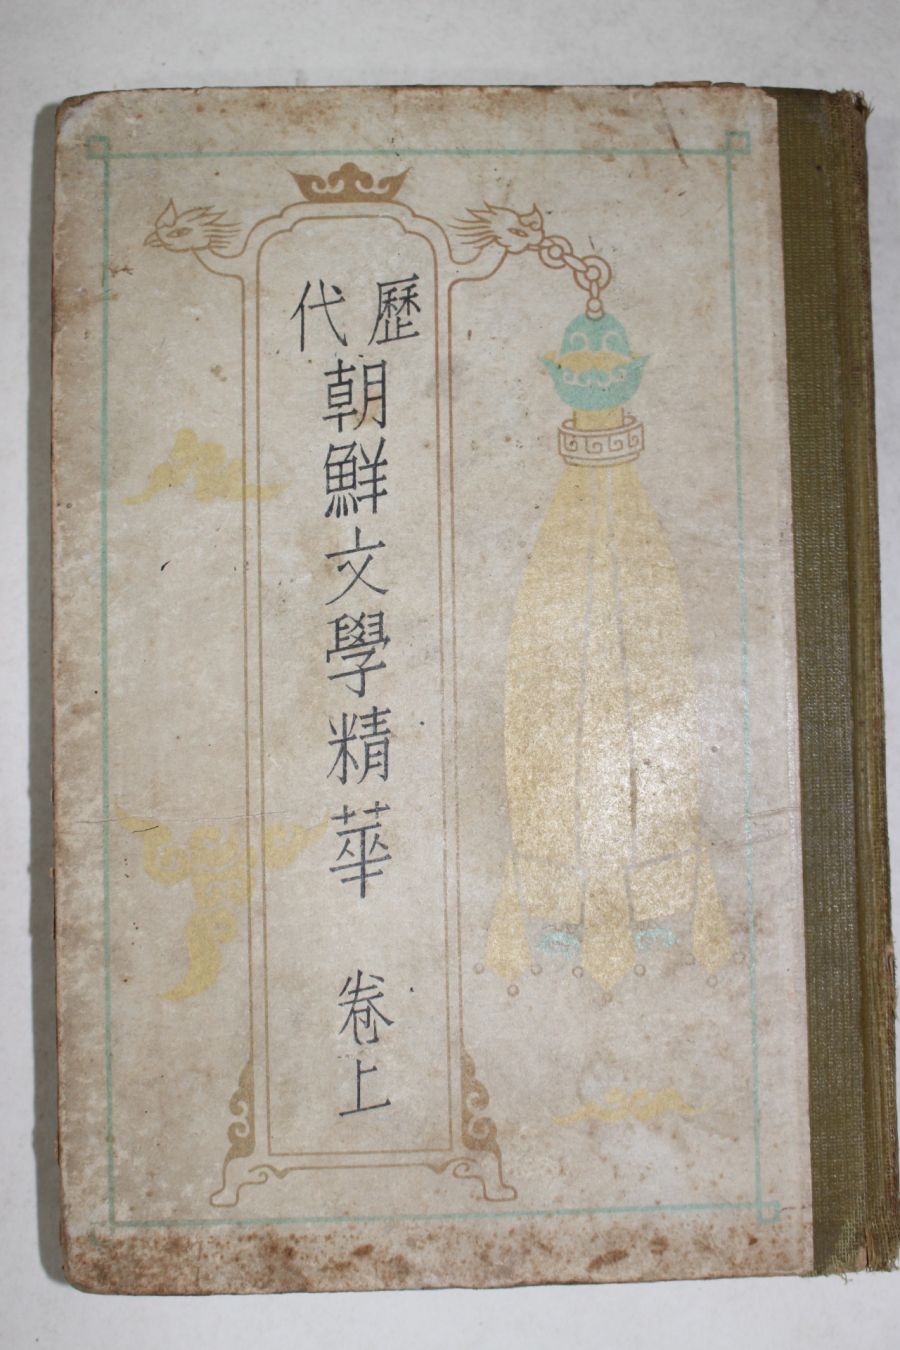 歷代
朝鮮文學精華 卷上